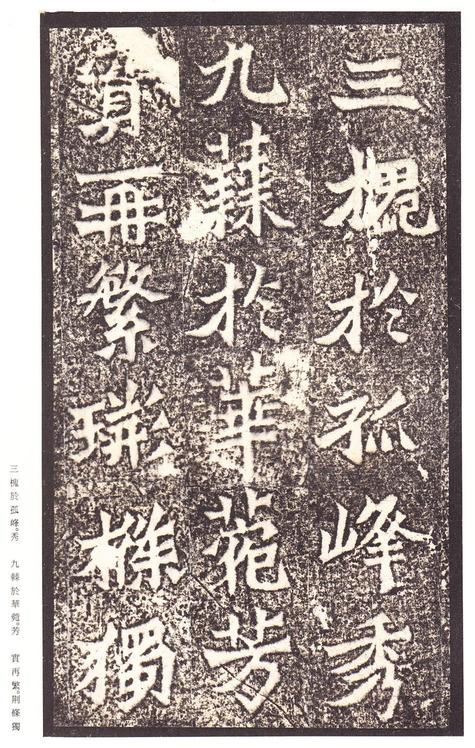 三槐於孤峰秀
九棘於華菀芳
實再繁荊條獨
三槐於孤峰。秀　九棘於華菀。芳　實再繁。荊條獨